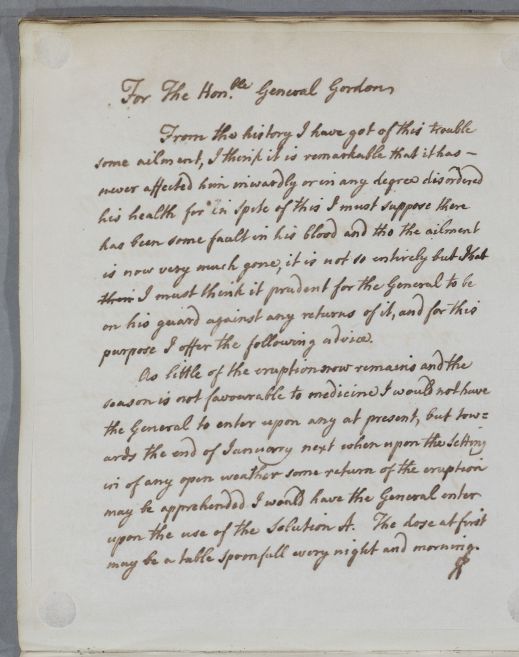 For The Hon.ble General Gordon
From the history I have got of this trouble
some ailment, I think it is remarkable that it has –
never affected him inwardly or in any degree disordered
his health for in spite of this I must suppose there
has been some fault in his blood and tho the ailment
is now very much gone, it is not so entirely but that
I must think it prudent for the General to be
on his guard against any returns of it, and for this
purpose I offer the following advice.
As little of the eruption now remains and the
season is not favourable to medicine I would not have
the General to enter upon any at present, but tow=
ards the end of January next when upon the setting
in of any open weather some return of the eruption
may be apprehended I would have the General enter
upon the use of the Solution A. The dose at first
may be a table spoonfull every night and morning.